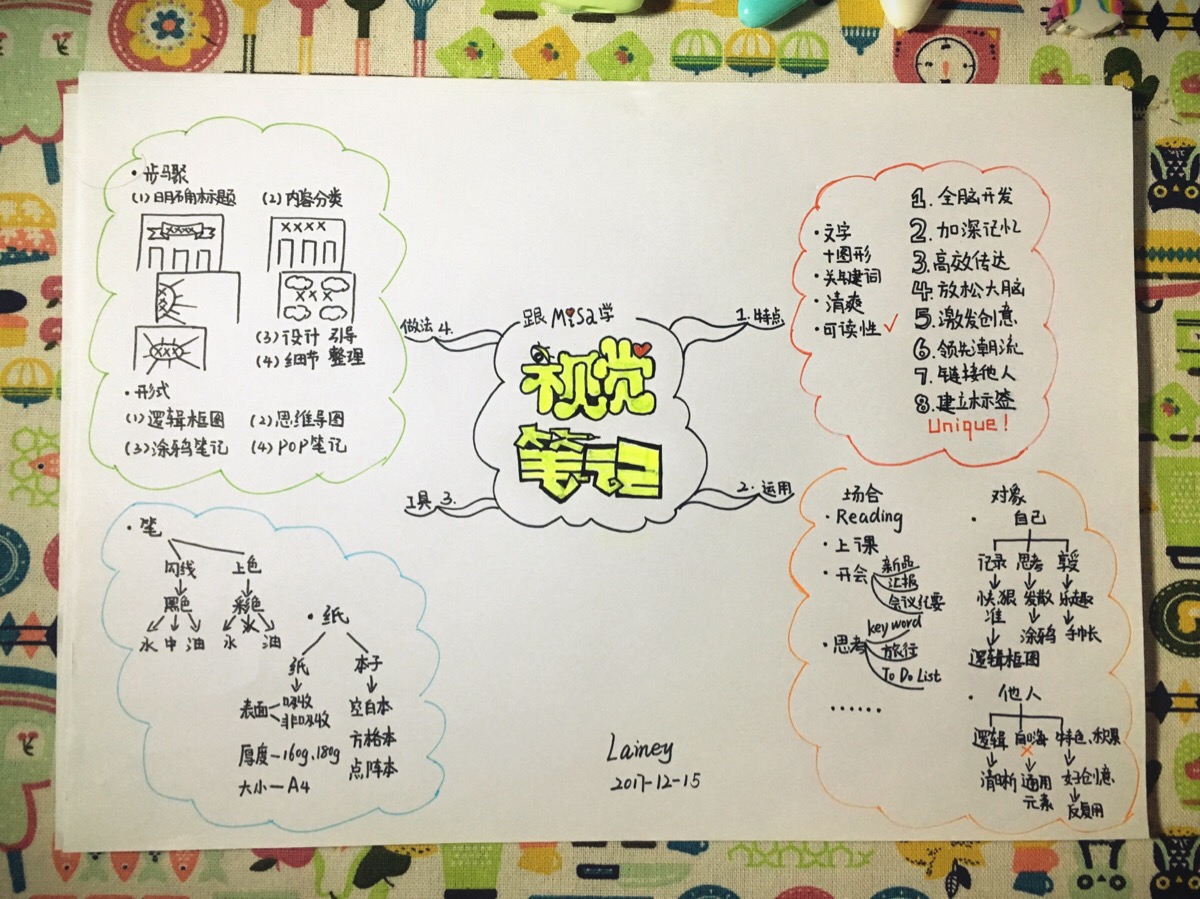 跟Misa学
视觉
笔记
1. 特点
· 文字
+图形
· 关键词
· 清爽
· 可读性 ✓
1. 全脑开发
2. 加深记忆
3. 高效传达
4. 放松大脑
5. 激发创意
6. 领先潮流
7. 链接他人
8. 建立标签
Unique!
2. 运用
场合
· Reading
· 上课
· 开会
新品
汇报
会议纪要
· 思考
key word
旅行
To Do List
······
对象
· 自己
记录 思考 享受
快狠准 发散 乐趣
逻辑框图 涂鸦 手帐
· 他人
逻辑 特色、积累
清晰 通用元素 好创意
反复用
工具 3.
· 笔
勾线 上色
黑色 彩色
水 中 油 水 油
· 纸
纸 本子
表面 吸收
非吸收
厚度—160g、180g
大小—A4
空白本
方格本
点阵本
做法 4.
· 步骤
(1) 明确标题 (2) 内容分类
××××
××××
×××
×××
(3) 设计 引导
(4) 细节 整理
· 形式
(1) 逻辑框图 (2) 思维导图
(3) 涂鸦笔记 (4) POP笔记
Lainey
2017-12-15